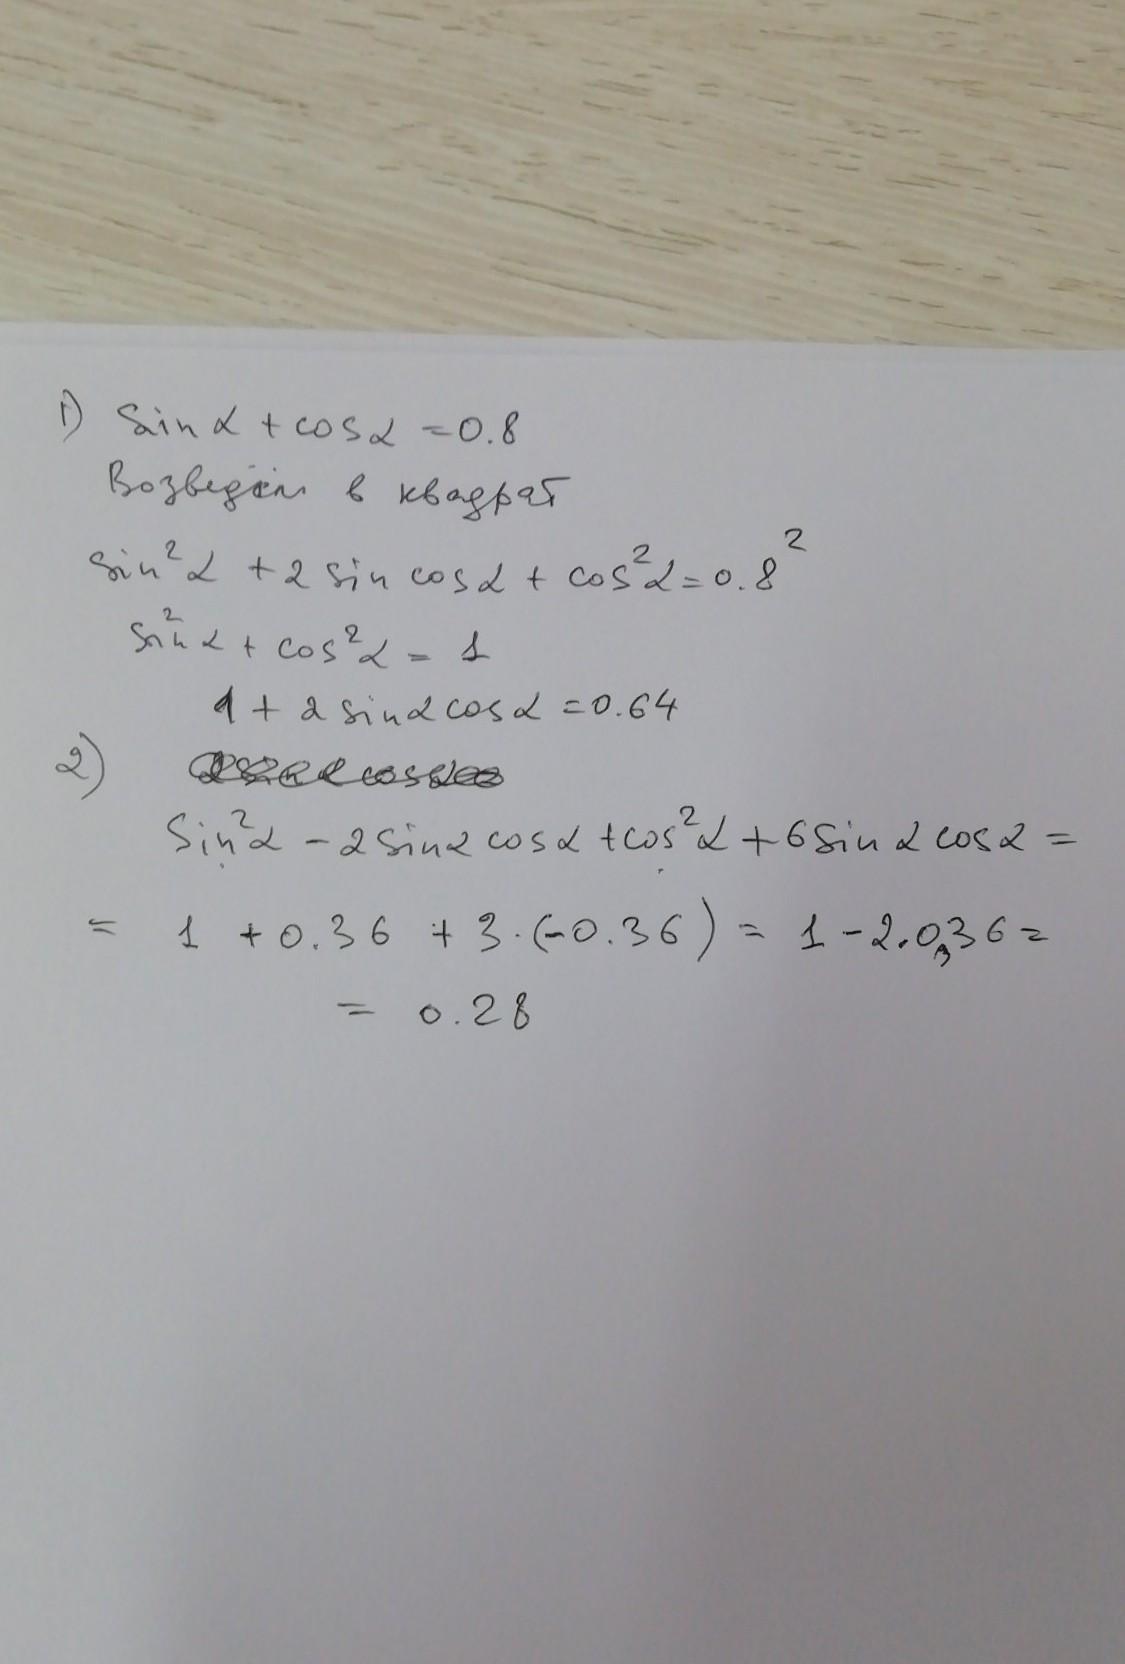 1) sin α + cos α = 0.8
Возведём в квадрат
sin² α + 2 sin cos α + cos² α = 0.8²
sin² α + cos² α = 1
1 + 2 sin α cos α = 0.64
2)
sin² α - 2 sin α cos α + cos² α + 6 sin α cos α =
= 1 + 0.36 + 3·(-0.36) = 1 - 2.0,36 =
= 0.28